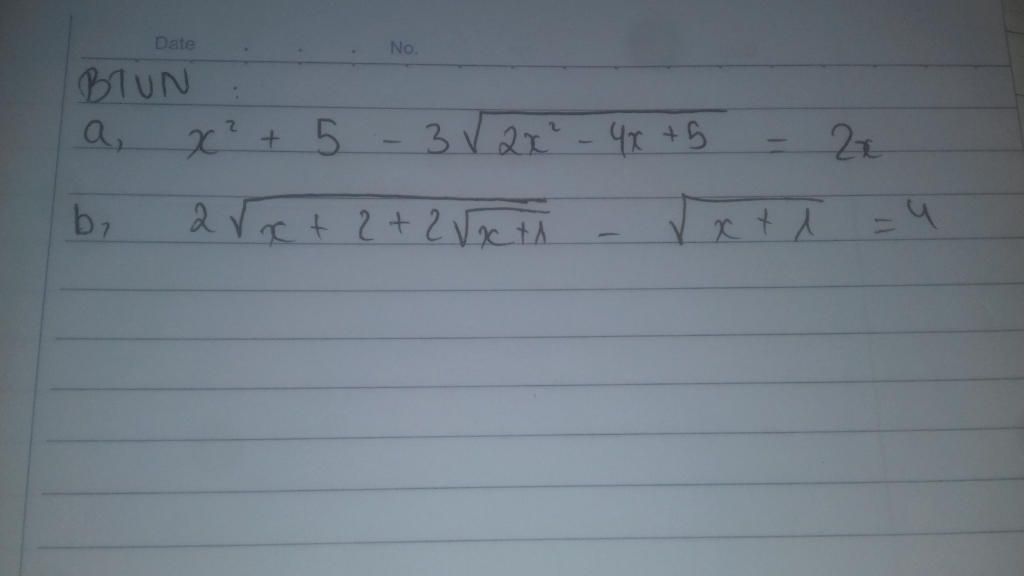 Date . . . No.
BTVN :
a, x² + 5 - 3√(2x² - 4x + 5) = 2x
b, 2√(x + 2 + 2√(x+1)) - √(x + 1) = 4